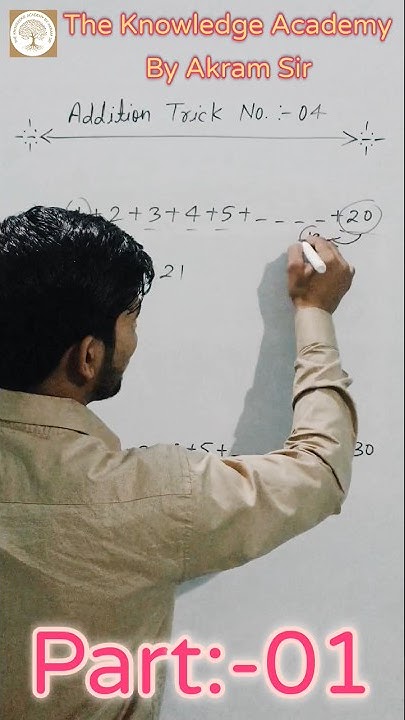 The Knowledge Academy
By Akram Sir
Addition Trick No. :- 04
+ 2 + 3 + 4 + 5 + - - - - + 20
21
+ 5 + 30
Part:-01